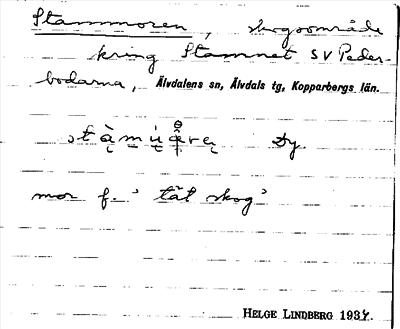 Stammoren, skogsområde
kring Stamnet SV Peder-
bodarna, Älvdalens sn, Älvdals tg, Kopparbergs län.
Dy.
mor f. 'tät skog'
HELGE LINDBERG 1934.